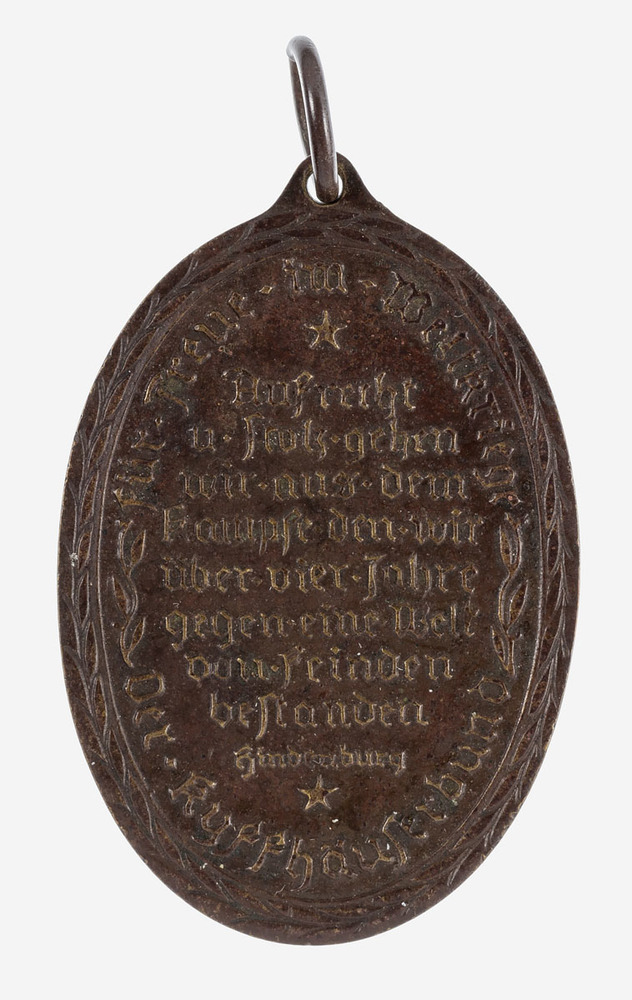 Für · Treue · im · Weltkriege
Aufrecht
u · stolz · gehen
wir · aus · dem
Kampfe · den · wir
über · vier · Jahre
gegen · eine Welt
von · Feinden
bestanden
Hindenburg
Der · Kyffhäuserbund